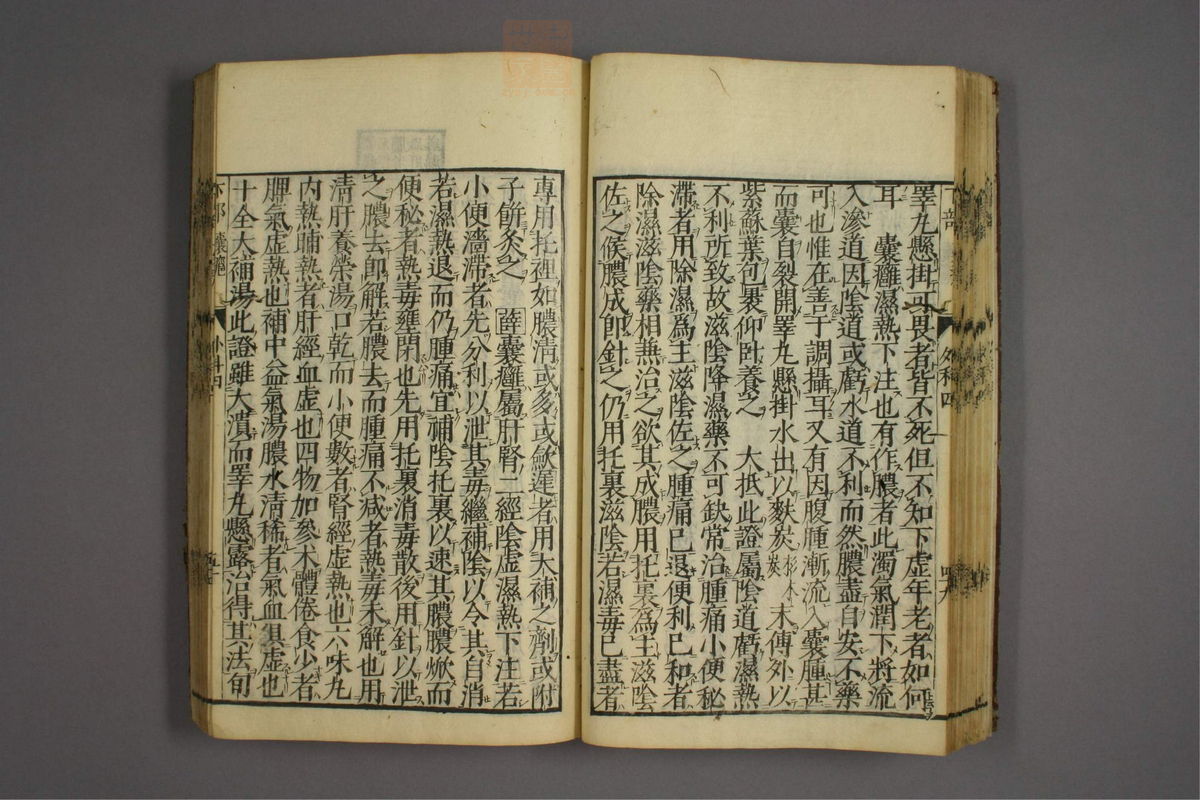 睪丸懸掛可畏者皆不死但不知下虛年老者如何
耳　囊癰濕熱下注也有作膿者此濁氣潤下將流
入滲道因陰道或虧水道不利而然膿盡自安不藥
可也惟在善于調攝耳又有因腹腫漸流入囊腫甚
而囊自裂開睪丸懸掛水出以麩炭杉木炭末傅外以
紫蘇葉包裹仰臥養之　大抵此證屬陰道虧濕熱
不利所致故滋陰降濕藥不可缺常治腫痛小便秘
滯者用除濕爲主滋陰佐之腫痛已退便利已和者
除濕滋陰藥相兼治之欲其成膿用托裏爲主滋陰
佐之候膿成即針之仍用托裏滋陰若濕毒已盡者
專用托裡如膿清或多或歛遲者用大補之劑或附
子餅灸之　薛囊癰屬肝腎二經陰虛濕熱下注若
小便濇滯者先分利以泄其毒繼補陰以令其自消
若濕熱退而仍腫痛宜補陰托裏以速其膿膿焮而
便秘者熱毒壅閉也先用托裏消毒散後用針以泄
之膿去即解若膿去而腫痛不减者熱毒未解也用
清肝養榮湯口乾而小便數者腎經虛熱也六味丸
內熱晡熱者肝經血虛也四物加參朮體倦食少者
脾氣虛熱也補中益氣湯膿水清稀者氣血俱虛也
十全大補湯此證雖大潰而睪丸懸露治得其法旬
外科四
四十九